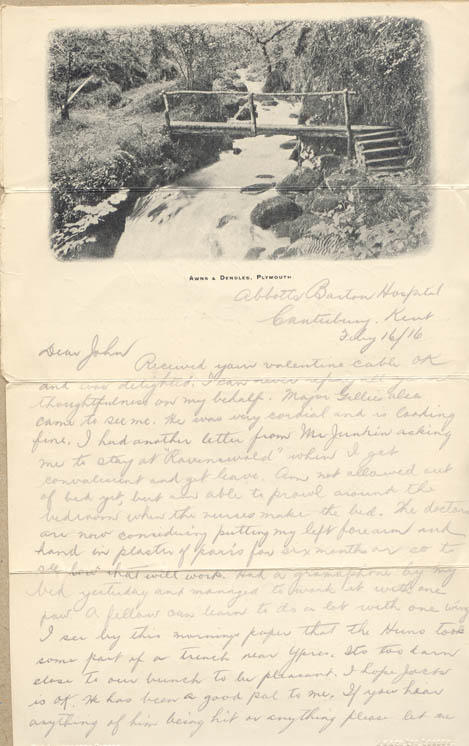 AWNS & DENDLES, PLYMOUTH
Abbotts Barton Hospital
Canterbury. Kent
Feby 16/16
Dear John
Received your valentine cable OK
and was delighted. I can never repay all
thoughtfulness on my behalf. Major Gillies also
came to see me. He was very cordial and is looking
fine. I had another letter from Mr Junkin asking
me to stay at "Ravenswald" when I get
convalescent and get leave. Am not allowed out
of bed yet, but am able to prowl around the
bedroom when the nurses make the bed. The doctors
are now considering putting my left forearm and
hand in plaster of paris for six months or so to
see how that will work. Had a gramaphone by my
bed yesterday and managed to work it with one
paw. A fellow can learn to do a lot with one wing
I see by this mornings paper that the Huns took
some part of a trench near Ypres. Its too darn
close to our bunch to be pleasant. I hope
is OK. He has been a good pal to me. If you hear
anything of him being hit or anything please let me